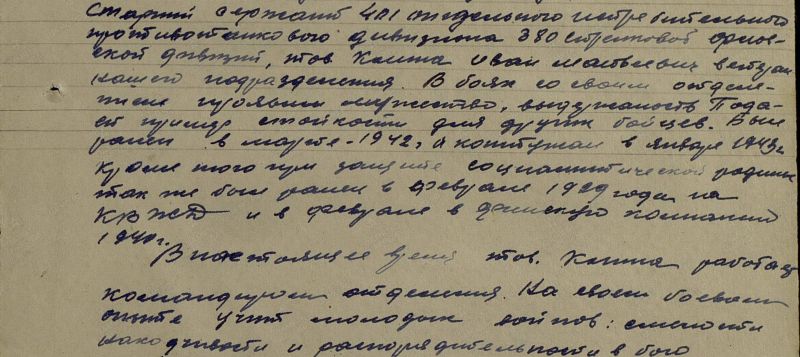 Старший сержант 401 отдельного истребительного
противотанкового дивизиона 380 стрелковой Орлов-
ской дивизии, тов. Иван Матвеевич ветеран
нашего подразделения. В боях со своим отделе-
нием проявил мужество, выдержаность. Пода-
ет пример стойкости для других бойцев. Был
ранен в марте - 1942 г. и контужен в январе 1943 г.
Кроме того при защите социалистической родины
так же был ранен в феврале 1929 года на
КВЖД и в феврале в финскую компанию
1940 г.
В настоящее время тов. работает
командиром отделения. На своем боевом
опыте учит молодых воинов: смелости
находчивости и распорядительности в бою